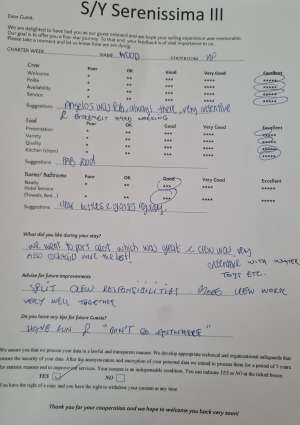 S/Y Serenissima III
Dear Guest,
We are delighted to have had you as our guest onboard and we hope your sailing experience was memorable.
Our goal is to offer you a five star journey. To that end, your feedback is of vital importance to us.
Please take a moment and let us know how we are doing.
CHARTER WEEK NAME WOOD STATEROOM VIP
Crew Poor OK Good Very Good Excellent
Welcome * ** *** **** *****
Polite * ** *** **** *****
Availability * ** *** **** *****
Service * ** *** **** *****
Suggestions always there, very attentive
& hard working
Food Poor OK Good Very Good Excellent
Presentation * ** *** **** *****
Variety * ** *** **** *****
Quality * ** *** **** *****
Kitchen * ** *** **** *****
Suggestions FAB food
Rooms/ Bathrooms Poor OK Good Very Good Excellent
Beauty * ** *** **** *****
Hotel Service * ** *** **** *****
(Towels, Bed...)
Suggestions & glasses
What did you like during your stay?
we went to ports which was great & crew was very
also cocktail were the best! attentive with water
toys etc.
Advice for future improvements
SPLIT CREW RESPONSIBILITIES CREW WORK
VERY WELL TOGETHER
Do you have any tips for future Guests?
HAVE FUN & "DON'T GO ANYWHERE"
We assure you that we process your data in a lawful and transparent manner. We develop appropriate technical and organizational safeguards that
ensure the security of your data. After the anonymization and encryption of your personal data we intend to process them for a period of 5 years
for statistic reasons and to improve our services. Your consent is an indispensable condition. You can indicate YES or NO at the ticked boxes.
YES NO
You have the right of a copy and you have the right to withdraw your consent at any time.
Thank you for your cooperation and we hope to welcome you back very soon!